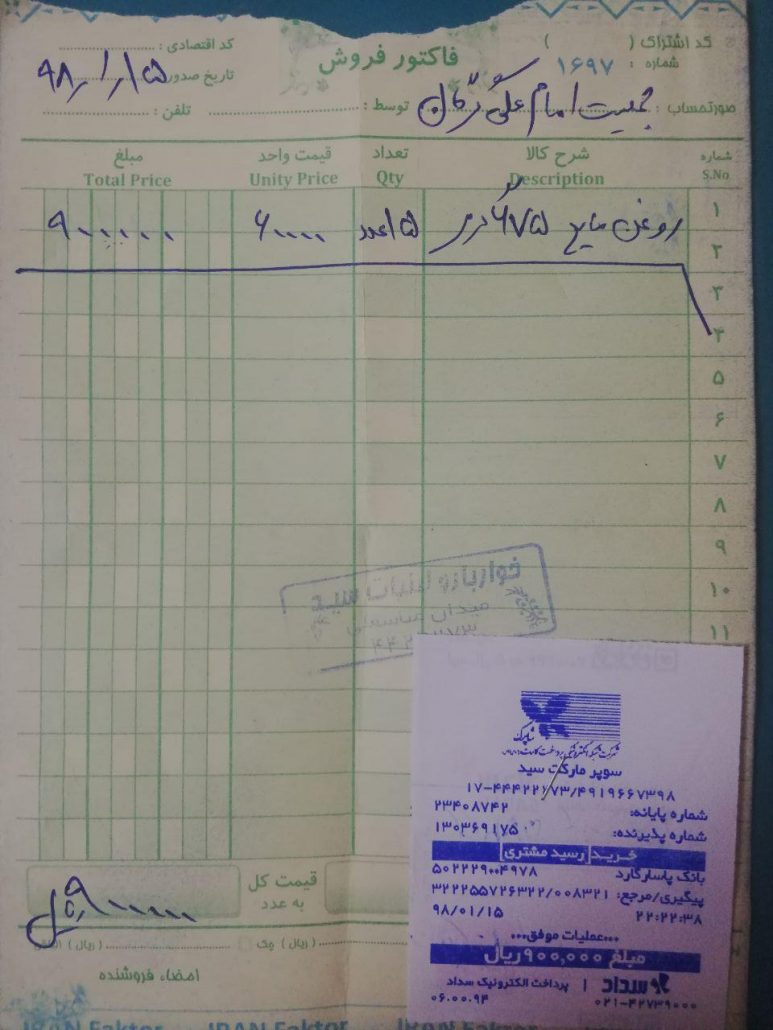 کد اشتراک ( )
فاکتور فروش
کد اقتصادی :
شماره : ۱۶۹۷
تاریخ صدور ۹۸/۱/۱۵
صورتحساب : جمعیت امام علی گرگان
توسط :
تلفن :
شماره شرح کالا تعداد قیمت واحد مبلغ
S.No Description Qty Unity Price Total Price
۱ روغن مایع ۶۷۵ گرمی ۱۵ عدد ۶۰۰۰۰ ۹۰۰۰۰۰
۲
۳
۴
۵
۶
۷
۸
۹
۱۰
۱۱
خواربار و لبنیات سید
میدان
قیمت کل
به عدد
۹۰۰۰۰۰ ریال
( ریال ) چک
( ریال )
امضاء فروشنده
IRAN Faktor IRAN Faktor IRAN Faktor
شاپرک
سوپر مارکت سید
۱۷-۴۴۴۲۲۱۷۳/۴۹۱۹۶۶۷۳۹۸
شماره پایانه: ۲۳۴۰۸۷۴۲
شماره پذیرنده: ۱۳۰۳۶۹۱۷۵
خرید رسید مشتری
بانک پاسارگارد ۵۰۲۲۲۹۰۰۴۹۷۸
پیگیری/مرجع: ۳۲۲۲۵۵۷۲۶۳۲۲/۰۰۸۳۲۱
۹۸/۰۱/۱۵ ۲۲:۲۲:۳۸
...عملیات موفق...
مبلغ ۹۰۰,۰۰۰ ریال
سداد | پرداخت الکترونیک سداد
۰۲۱-۴۲۷۳۹۰۰۰ ۰۶.۰۰.۹۴